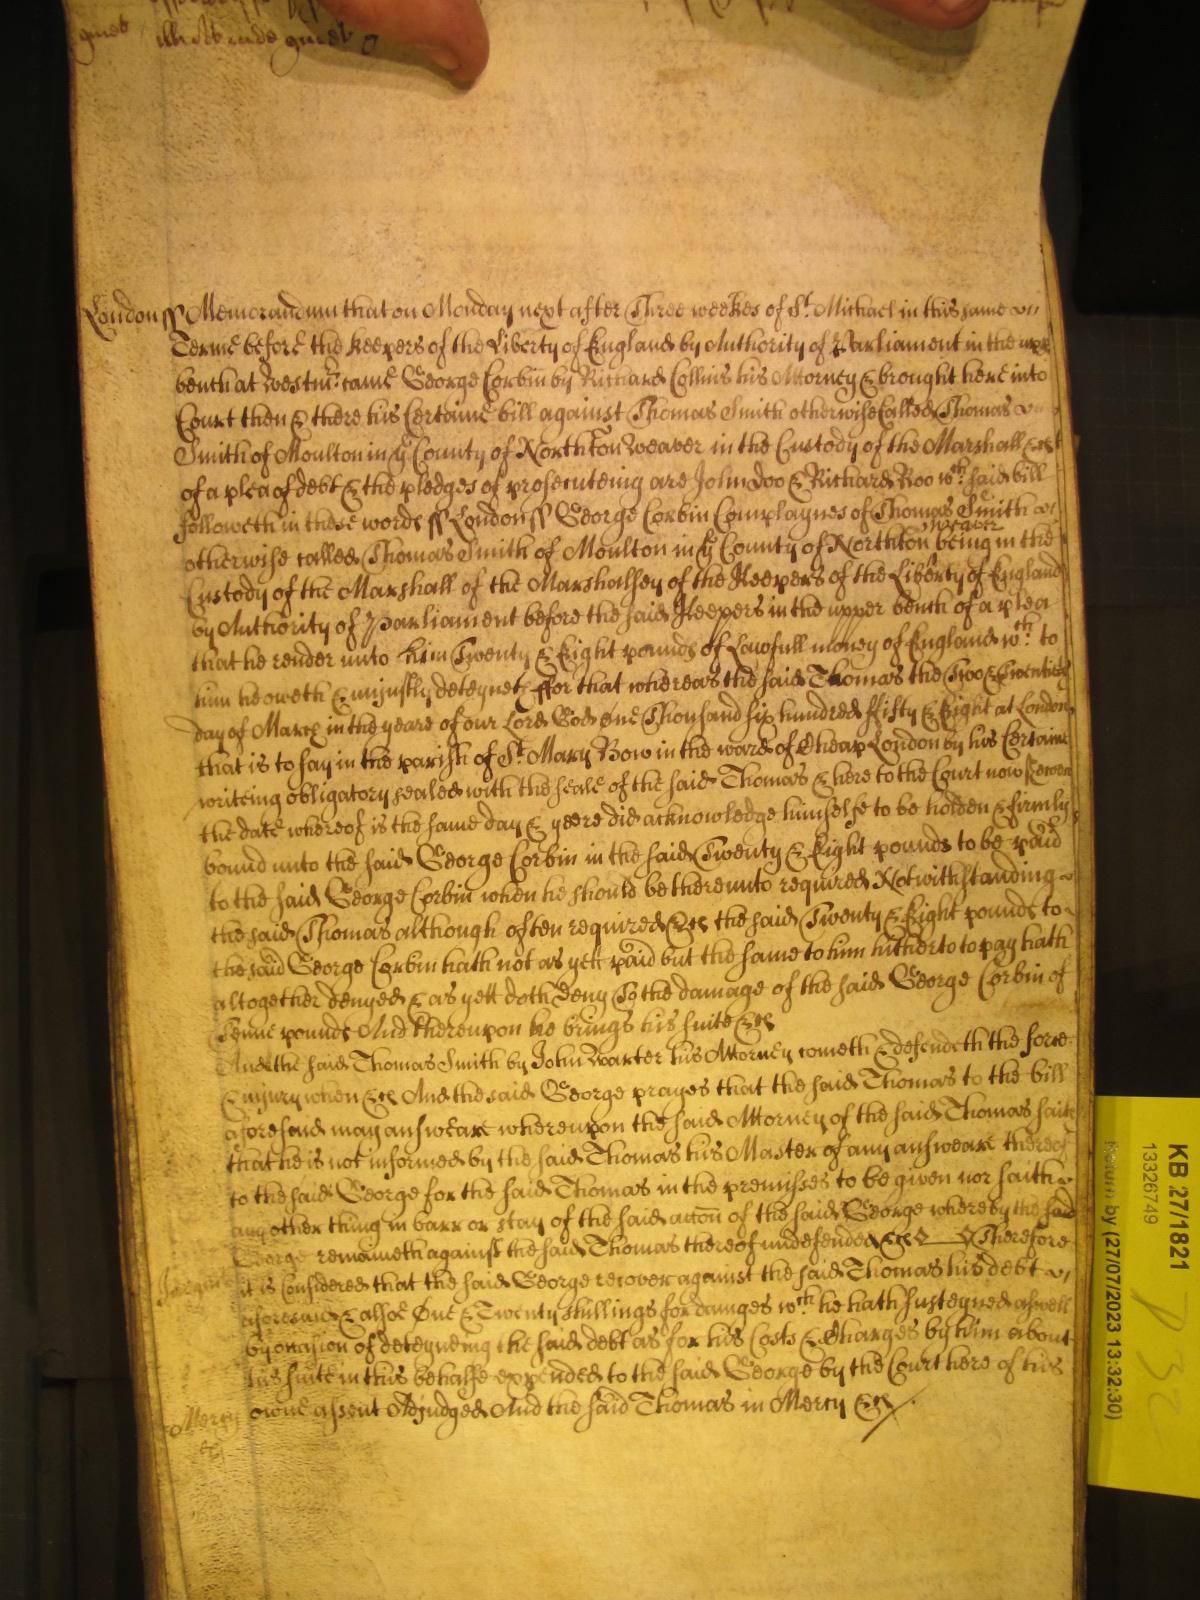 quiet illi Ibride quiet
London ss Memorandum that on Monday next after Three weekes of St. Michael in this same
Terme before the Keepers of the Liberty of England by Authority of Parliament in the upp
bench at Westmr. came George Corbin by Richard Collins his Attorney & brought here into
Court then & there his Certaine bill against Thomas Smith otherwise Called Thomas
Smith of Moulton in ye County of Northton Weaver in the Custody of the Marshall &c
of a plea of debt & the pledges of prosecuteing are John Doo & Richard Roo wch. said bill
followeth in these words ss London ss George Corbin Complaynes of Thomas Smith
otherwise called Thomas Smith of Moulton in ye County of Northton weaver being in the
Custody of the Marshall of the Marshalsey of the Keepers of the Liberty of England
by Authority of Parliament before the said Keepers in the upper bench of a plea
that he render unto him Twenty & Eight pounds of Lawfull money of England wch. to
him he oweth & unjustly deteyneth ffor that whereas the said Thomas the Two & Twentieth
day of March in the yeare of our Lord God One Thousand six hundred ffifty & Eight at London
that is to say in the parish of St. Mary Bow in the ward of Cheap London by his Certaine
writeing obligatory sealed with the seale of the said Thomas & here to the Court now shewen
the date whereof is the same day & yeere did acknowledge himselfe to be holden & firmly
bound unto the said George Corbin in the said Twenty & Eight pounds to be paid
to the said George Corbin when he should be thereunto required Notwithstanding
the said Thomas although often required &c the said Twenty & Eight pounds to
the said George Corbin hath not as yett paid but the same to him hitherto to pay hath
altogether denyed & as yett doth deny To the damage of the said George Corbin of
Tenne pounds And thereupon he brings his suite &c
And the said Thomas Smith by John Warter his Attorney cometh & defendeth the force
& injury when &c And the said George prayes that the said Thomas to the bill
aforesaid may answeare whereupon the said Attorney of the said Thomas saith
that he is not informed by the said Thomas his Master of any answeare thereof
to the said George for the said Thomas in the premisses to be given nor saith
any other thing in barr or stay of the said accon of the said George whereby the said
George remaineth against the said Thomas thereof undefended &c Therefore
it is Considered that the said George recover against the said Thomas his debt
aforesaid & alsoe One & Twenty shillings for damages wch. he hath susteyned aswell
by occasion of deteyneing the said debt as for his Costs & Charges by him about
his suite in this behalfe expended to the said George by the Court here of his
owne assent Adjudged And the said Thomas in Mercy &c
Mercy
&c
KB 27/1821
13326749
Return by (27/07/2023 13:32:30)